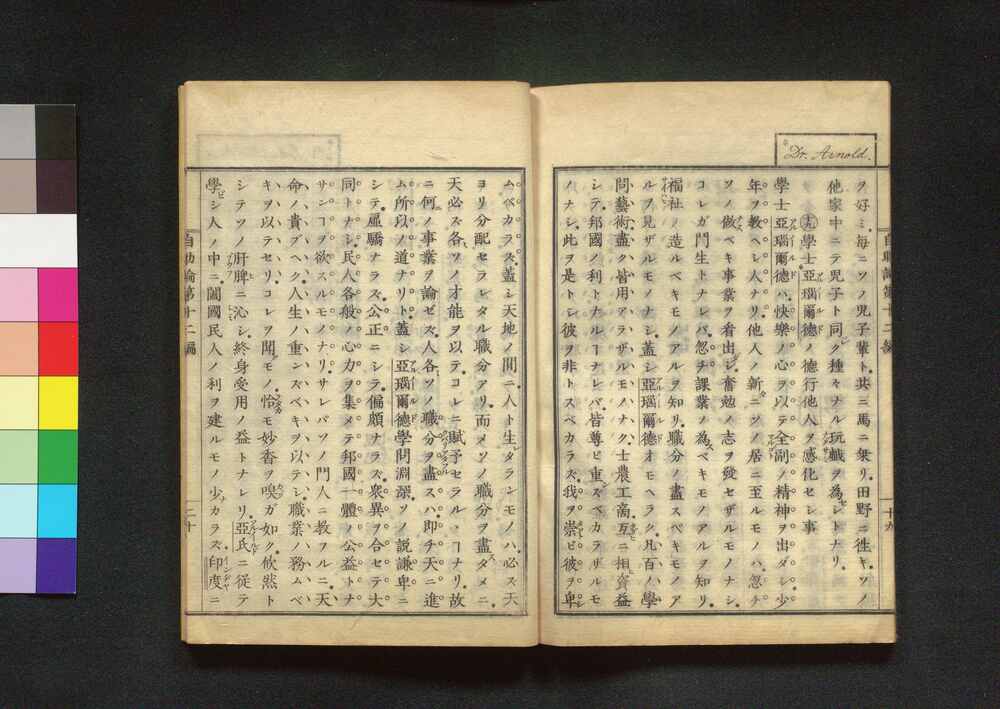 Dr. Arnold.
ヲ好ミ毎ニソノ兒子輩ト共ニ馬ニ乗リ田野ニ徃キソノ
他家中ニテ児子ト同ク種々ナル玩戯ヲ為シトナリ
十九 學士亞瑙爾德ノ德行他人ヲ感化セシ事
學士亞瑙爾德ハ快樂ノ心ヲ以テ全副ノ精神ヲ出ダシ少
年ヲ教ヘシ人ナリ他人ノ新々ニソノ居ニ至ルモノハ忽チ
ソノ做ベキ事業ヲ看出シ奮勉ノ志ヲ發セザルモノナシ
コレガ門生トナレバ忽チ課業ノ為スベキモノアルヲ知リ
福祉ノ造ルベキモノアルヲ知リ職分ノ盡スベキモノア
ルヲ見ザルモノナシ蓋シ亞瑙爾德オモヘラク凡百ノ學
問藝術盡ク皆用アラザルモノナク士農工商互ニ相資益
シテ邦國ノ利トナルヿナレバ皆尊ビ重ズベカラザルモ
ノナシ此ヲ是トシ彼ヲ非トスベカラス我ヲ崇ビ彼ヲ卑
自助論第十二編
十九
ムベカラス蓋シ天地ノ間ニ人ト生タランモノハ必ス天
ヨリ分配セラレタル職分アリ而メソノ職分ヲ盡スタメニ
天必ス各々ソノ才能ヲ以テコレニ賦予セラルヽヿナリ故
ニ何ノ事業ヲ論ゼス人各々ソノ職分ヲ盡スハ即チ天ニ進
ム所以ノ道ナリト蓋シ亞瑙爾德學問淵深ソノ説謙卑ニ
シテ驕ナラス公正ニシテ偏頗ナラス衆異ヲ合セテ大
同トナシ民人各般ノ心力ヲ集メテ邦國一體ノ公益トナ
サンヿヲ欲スルモノナリサレバソノ門人ニ教フルニ天
命ノ貴ブヘク人生ノ重ンスベキヲ以テシ職業ノ務ムベ
キヲ以テセリコレヲ聞モノ恰モ妙香ヲ嗅ガ如ク攸然ト
シテソノ肝脾ニ沁シ終身受用ノ益トナレリ亞氏ニ従テ
學ビシ人ノ中ニ闔國民人ノ利ヲ建ルモノ少カラス印度ニ
自助論第十二編
二十